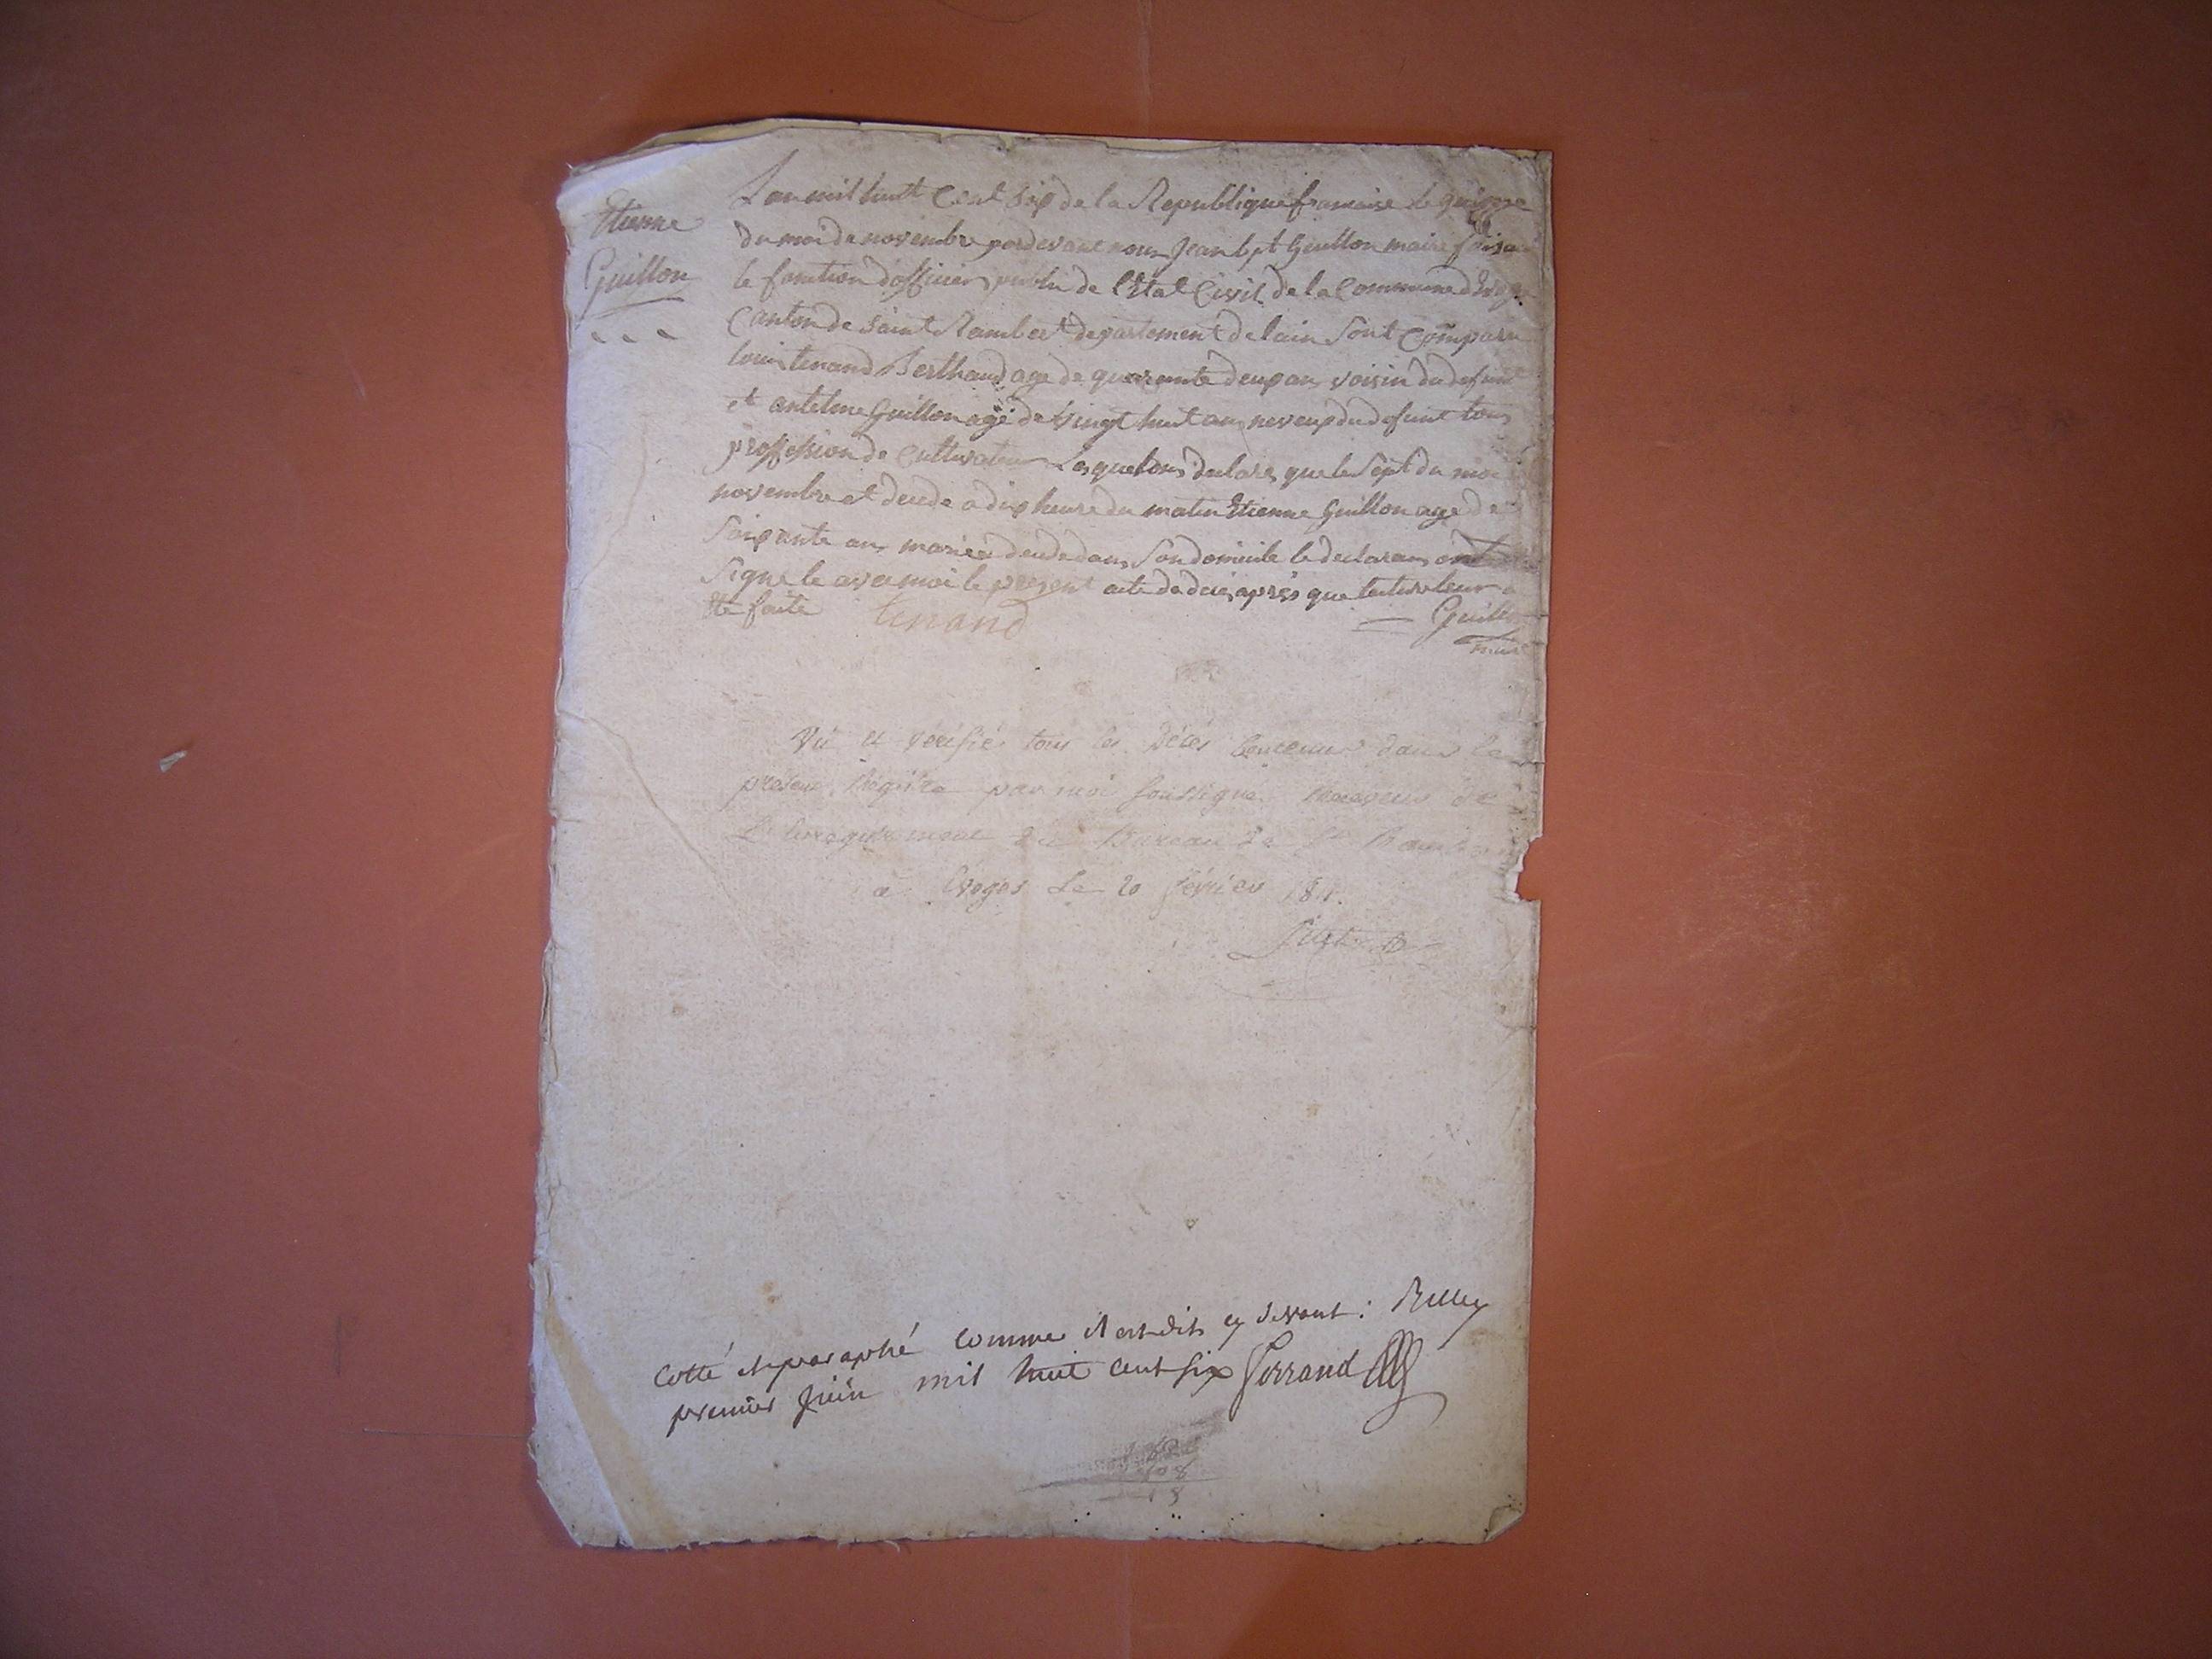 Etienne
Guillon
L'an mil huit Cent six de la Republique francaise le quinze
du moi de novembre pardevant nous Jean bpt Guillon maire faisan
le fonction d'officier public de l'Etat Civil de la Commune d'Evoge
Canton de Saint Rambert departement de lain Sont Comparu
louis tenand Berthaud age de quarante deux ans voisin du defunt
et antelme Guillon agé de vingt huit ans neveux du defunt tous
proffession de Cultivateur Lesquel ons declare que le Sept du moi
novembre et decede a dix heure du matin Etienne Guillon age de
Soixante ans marié decede dans Son domicile le declarans ont
Signe le avec moi le present acte de deces apres que lecture leur a
Ete faite tenand Guillon
maire
Vu et verifié tous les Décés Contenus dans le
présent Régistre par moi soussigné Receveur de
L'Enregistrement du Bureau de St Rambert
à Evoges Le 20 février 181
Cotté et paraphé comme il est dit cy devant : Belley
premier juin mil huit cent six Ferrand